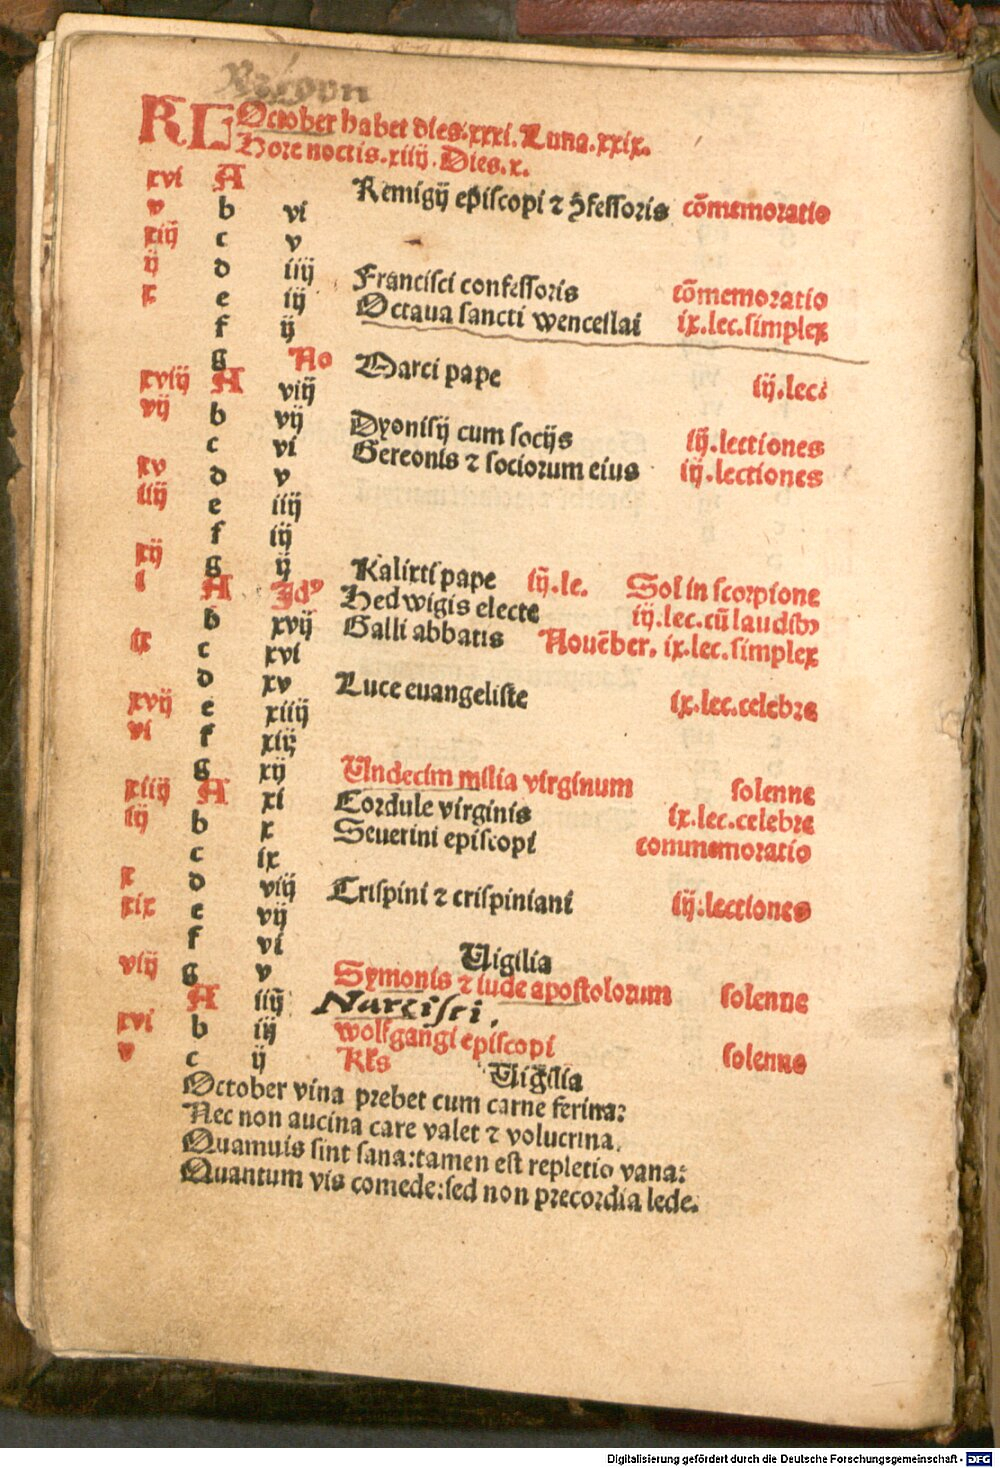 KL October habet dies.xxxi.Luna.xxix.
Hore noctis.xiiij.Dies.x.
xvi A Remigij episcopi ⁊ ꝯfessoris cõmemoratio
v b vi
xiij c v
ij d iiij Francisci confessoris cõmemoratio
x e iij Octaua sancti wencellai ix.lec.simplex
f ij
g No Marci pape iij.lec.
xviij A viij
vij b vij Dyonisij cum socijs iij.lectiones
c vi Gereonis ⁊ sociorum eius iij.lectiones
xv d v
iiij e iiij
f iij
xij g ij Kalixti pape iij.le. Sol in scorpione
i A Jdꝰ Hedwigis electe iij.lec.cũ laudibꝰ
b xvij Galli abbatis Nouẽber. ix.lec.simplex
ix c xvi
d xv Luce euangeliste ix.lec.celebre
xvij e xiiij
vi f xiij
g xij Undecim milia virginum solenne
xiiij A xi Cordule virginis ix.lec.celebre
iij b x Seuerini episcopi commemoratio
c ix
x d viij Crispini ⁊ crispiniani iij.lectiones
xix e vij
f vi Uigilia
viij g v Symonis ⁊ iude apostolorum solenne
A iiij Narcisci.
xvi b iij wolfgangi episcopi solenne
v c ij Kls Uigilia
October vina prebet cum carne ferina:
Nec non aucina care valet ⁊ volucrina.
Quamuis sint sana:tamen est repletio vana:
Quantum vis comede:sed non precordia lede.
Digitalisierung gefördert durch die Deutsche Forschungsgemeinschaft - DFG